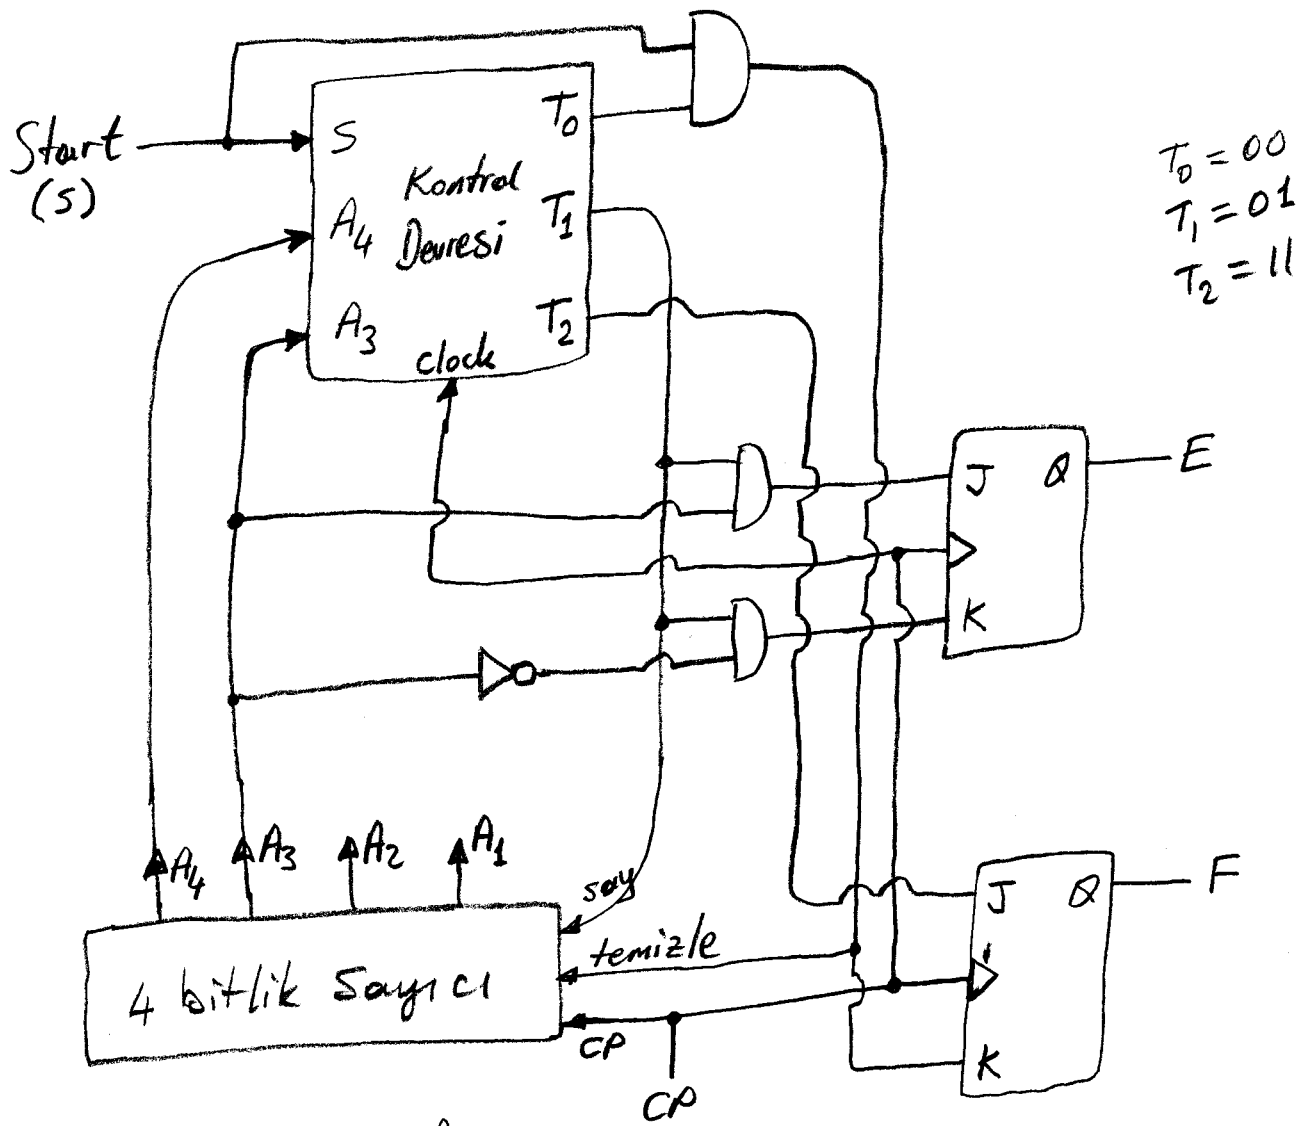 Start
(S)
S
A4
A3
Kontrol
Devresi
clock
T0
T1
T2
T0 = 00
T1 = 01
T2 = 11
J
Q
K
E
A4
A3
A2
A1
say
temizle
4 bitlik Sayıcı
CP
CP
J
Q
K
F